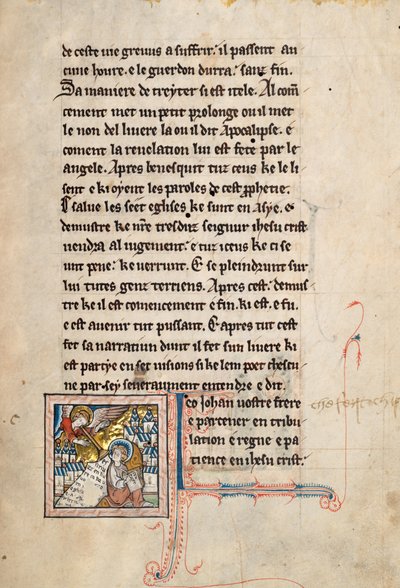 de ceste vie grevus a suffrir. il passent au
cune houre. e le guerdon durra. sanz fin.
Sa maniere de treyter si est itele. Al com
cement met un petit prologe ou il met
le non del livere la ou il dit Apocalipse. e
coment la revelation lui est fete par le
angele. Apres benesquit tuz ceus ke le li
sent e ki oyent les paroles de cest prophetie.
E salue les seet eglises ke sunt en Asye. e
demustre ke nre tresduz seignur ihesu crist
vendra al iugement. e tuz iceus ke ci se
unt pene. ke verrunt. E se pleindrunt sur
lui tutes genz terriens. Apres cest. demus
tre ke il est comencement e fin. ki est. e fu.
e est avenir tut puissant. E apres tut cest
fet sa narratiun dunt il fet sun livere ki
est partye en set visions si ke lem poet chescu
ne par sey severaument entendre e dit.
eo Johan vostre frere
e partener en tribu
lation e regne e pa
tience en ihesu crist.